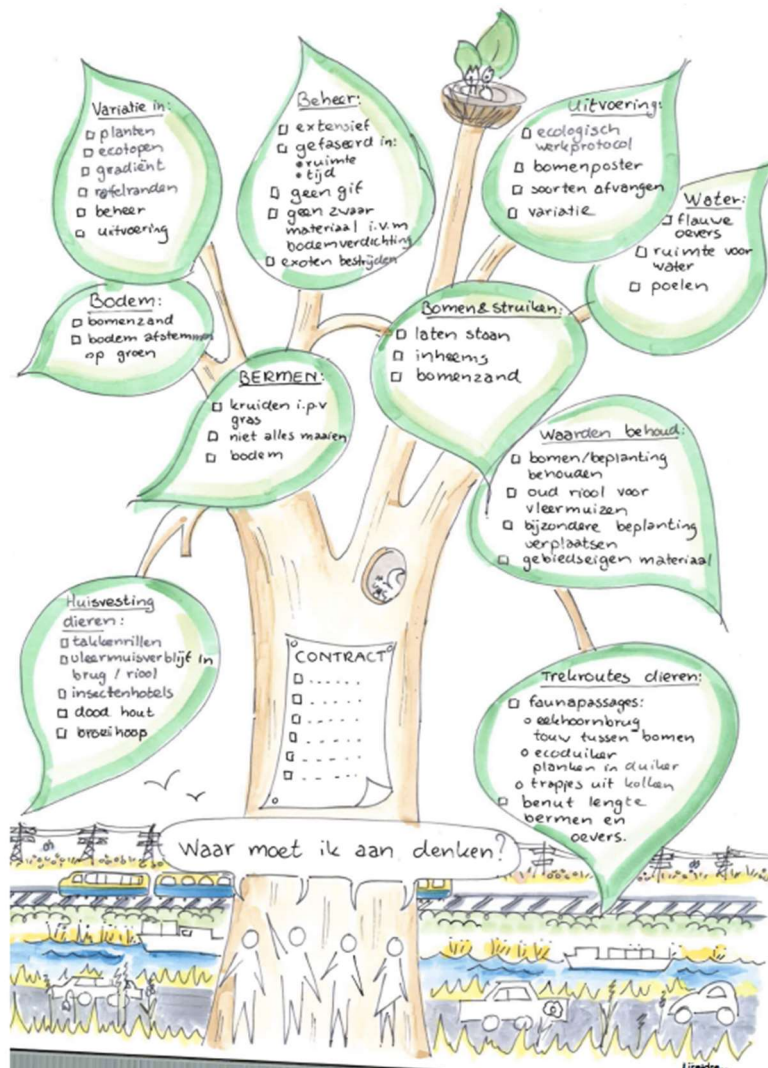 Variatie in:
planten
ecotopen
gradiënt
rafelranden
beheer
uitvoering
Beheer:
extensief
gefaseerd in:
ruimte
tijd
geen gif
geen zwaar
materiaal i.v.m
bodemverdichting
exoten bestrijden
Uitvoering:
ecologisch
werkprotocol
bomenposter
soorten afvangen
variatie
Water:
flauwe
oevers
ruimte voor
water
poelen
Bodem:
bomenzand
bodem afstemmen
op groen
Bomen & struiken:
laten staan
inheems
bomenzand
BERMEN:
kruiden i.p.v
gras
niet alles maaien
bodem
Waarden behoud:
bomen/beplanting
behouden
oud riool voor
vleermuizen
bijzondere beplanting
verplaatsen
gebiedseigen materiaal
Huisvesting
dieren:
takkenrillen
vleermuisverblijf in
brug / riool
insectenhotels
dood hout
broeihoop
CONTRACT
Trekroutes dieren:
faunapassages:
eekhoornbrug
touw tussen bomen
ecoduiker
planken in duiker
trapjes uit kolken
benut lengte
bermen en
oevers.
Waar moet ik aan denken?